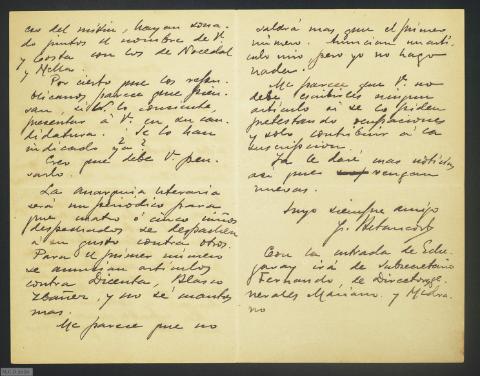 ces del mitin, hayan sona-
do juntos el nombre de V.
y Costa con los de Nocedal
y Mella.
Por cierto que los repu-
blicanos parece que pien-
san, si V. lo consiente,
presentar á V. en su can-
didatura. Se lo han
indicado ya?
Creo que debe V. pen-
sarlo.
La anarquia literaria
será un periodico para
que cuatro ó cinco niños
despechados se despachen
á su gusto contra otros.
Para el primer número
se anuncian articulos
contra Dicenta, Blasco
Ibañez, y no se cuantos
mas.
Me parece que no
saldrá mas que el primer
número. Anuncian un arti-
culo mio pero yo no hago
nada.
Me parece que V. no
debe escribirles ningun
articulo si se lo piden
pretestando ocupaciones
y solo contribuir á la
suscripcion.
Ya le daré mas noticias
asi que vengan
nuevas.
Suyo siempre amigo
J. Betancort
Con la entrada de Eche-
garay irá de subsecretario
Fernando, de Directores ge-
nerales Mariano y Medra-
no